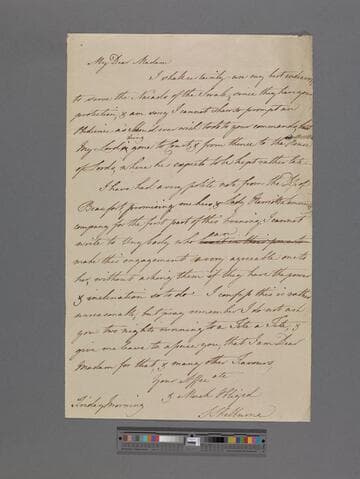 My Dear Madam
I shall certainly use my best endeavors
to serve the Naiads of the Sorale, since they have your
protection, & am sorry I cannot shew so prompt an
Obedience as I should ever wish to do to your commands, but
My Lord is gone to Court, & from thence to the House
of Lords, where he expects to be kept rather late.
I have had a very polite note from the Ds. of
Beaufort promising me her, & Lady Harriot's
company for the first part of this Evening; I cannot
write to any body who can
make this engagement a very agreeable one to
her, without asking them if they have the power
& inclination so to do. I confess this is rather
unreasonable, but pray remember I do not ask
you two nights running to a Tete a Tete, &
give me leave to assure you, that I am Dear
Madam for that, & many other Favours,
Your Affec ate
& Much Obliged
S Shelburne
Friday Morning